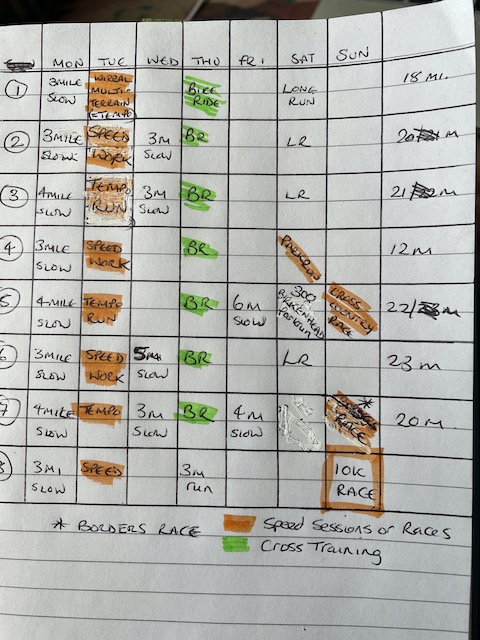 MON TUE WED THU FRI SAT SUN
1 3MILE SLOW WIRRAL MULTI-TERRAIN (5) TEMPO BIKE RIDE LONG RUN 18 MI.
2 3MILE SLOW SPEED WORK 3M SLOW BR LR 20 M
3 4MILE SLOW TEMPO RUN 3M SLOW BR LR 21 M
4 3MILE SLOW SPEED WORK BR PARKRUN 12M
5 4MILE SLOW TEMPO RUN BR 6M SLOW 300 BIRKENHEAD Parkrun CROSS COUNTRY RACE 22/ M
6 3MILE SLOW SPEED WORK 5M SLOW BR LR 23 m
7 4MILE SLOW TEMPO 3M SLOW BR 4M SLOW * RACE 20 M
8 3MI SLOW SPEED 3M run 10K RACE
* BORDERS RACE
Speed Sessions or Races
Cross Training